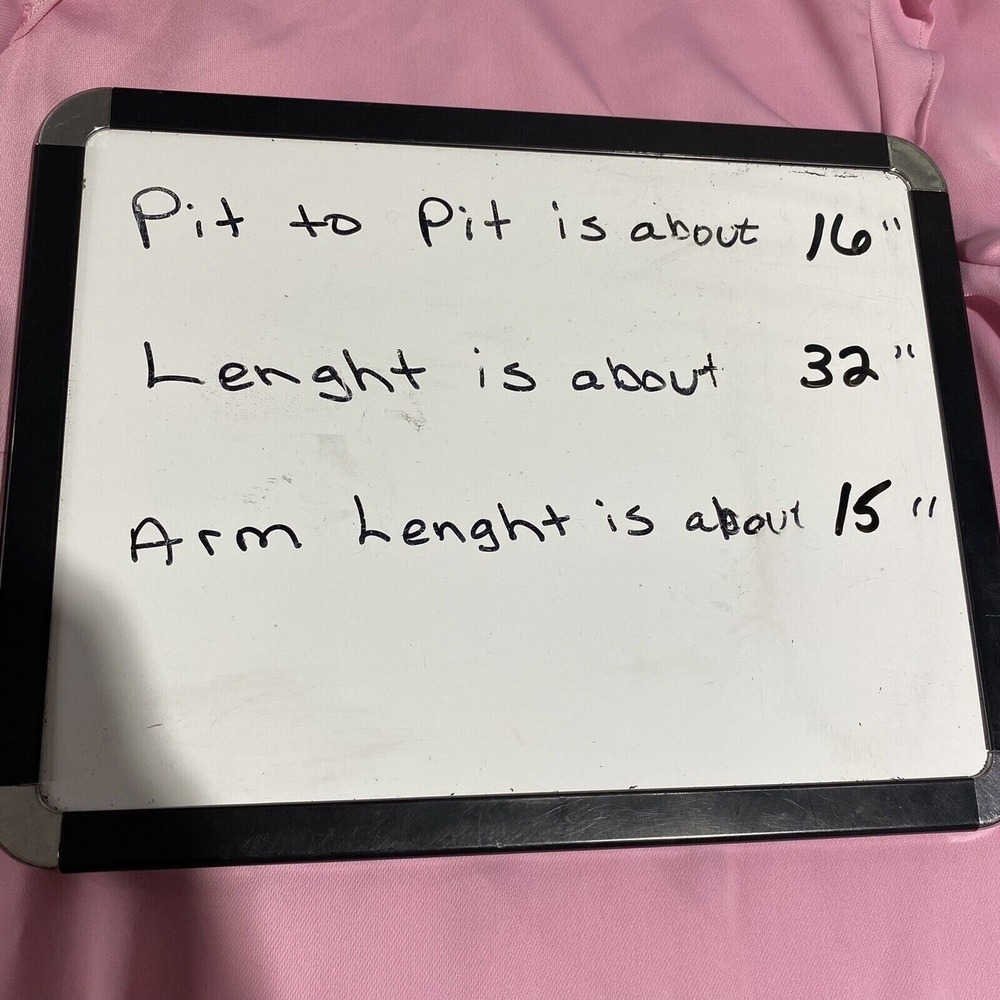 Pit to Pit is about 16"
Lenght is about 32"
Arm Lenght is about 15"